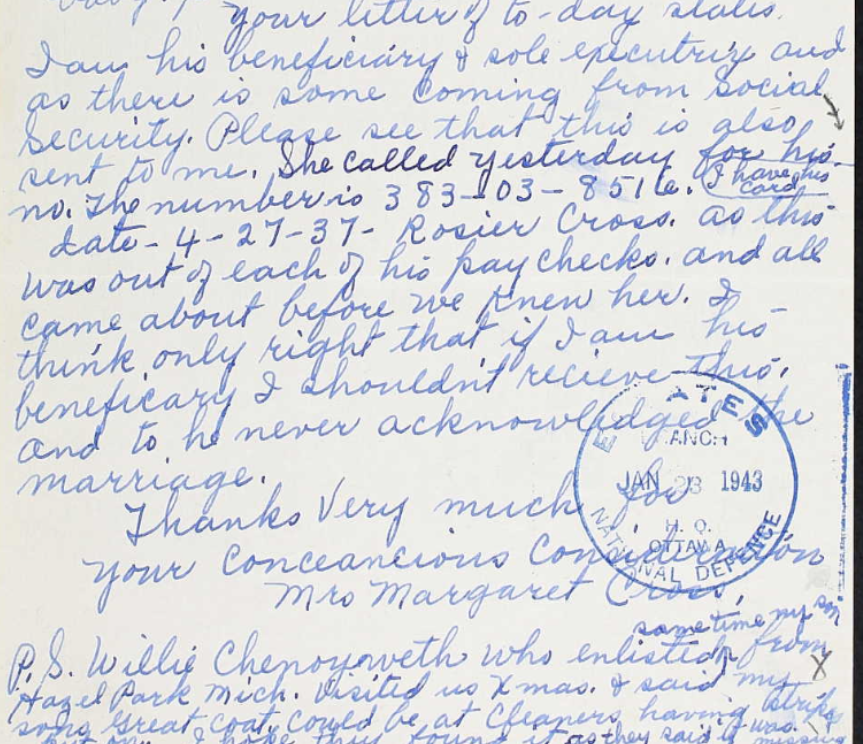 your letter of to-day states.
I am his beneficiary & sole executrix and
as there is some coming from Social
Security. Please see that this is also
sent to me. She called yesterday for his
no. The number is 383-03-8516. I have his
card
date - 4-27-37 - Rosier Cross. as this
was out of each of his pay checks. and all
came about before we knew her. I
think only right that if I am his
beneficary I shouldn't recieve this.
and to he never acknowledged the
marriage.
Thanks Very much for
your conceancious consideration
Mrs Margaret Cross,
ESTATES
JAN 23 1943
H. Q.
OTTAWA
NATIONAL DEFENCE
same time my son
P. S. Willie Chenoyweth who enlisted from
Hazel Park Mich. Visited us Xmas. & said my
sons great coat could be at Cleaners having stripe
put on. I hope they found it as they said it was missing